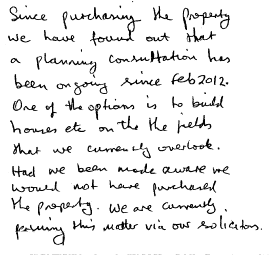 Since purchasing the property
we have found out that
a planning consultation has
been ongoing since Feb 2012.
One of the options is to build
houses etc on the the fields
that we currently overlook.
Had we been made aware we
would not have purchased
the property. We are currently
pursuing this matter via our solicitors.